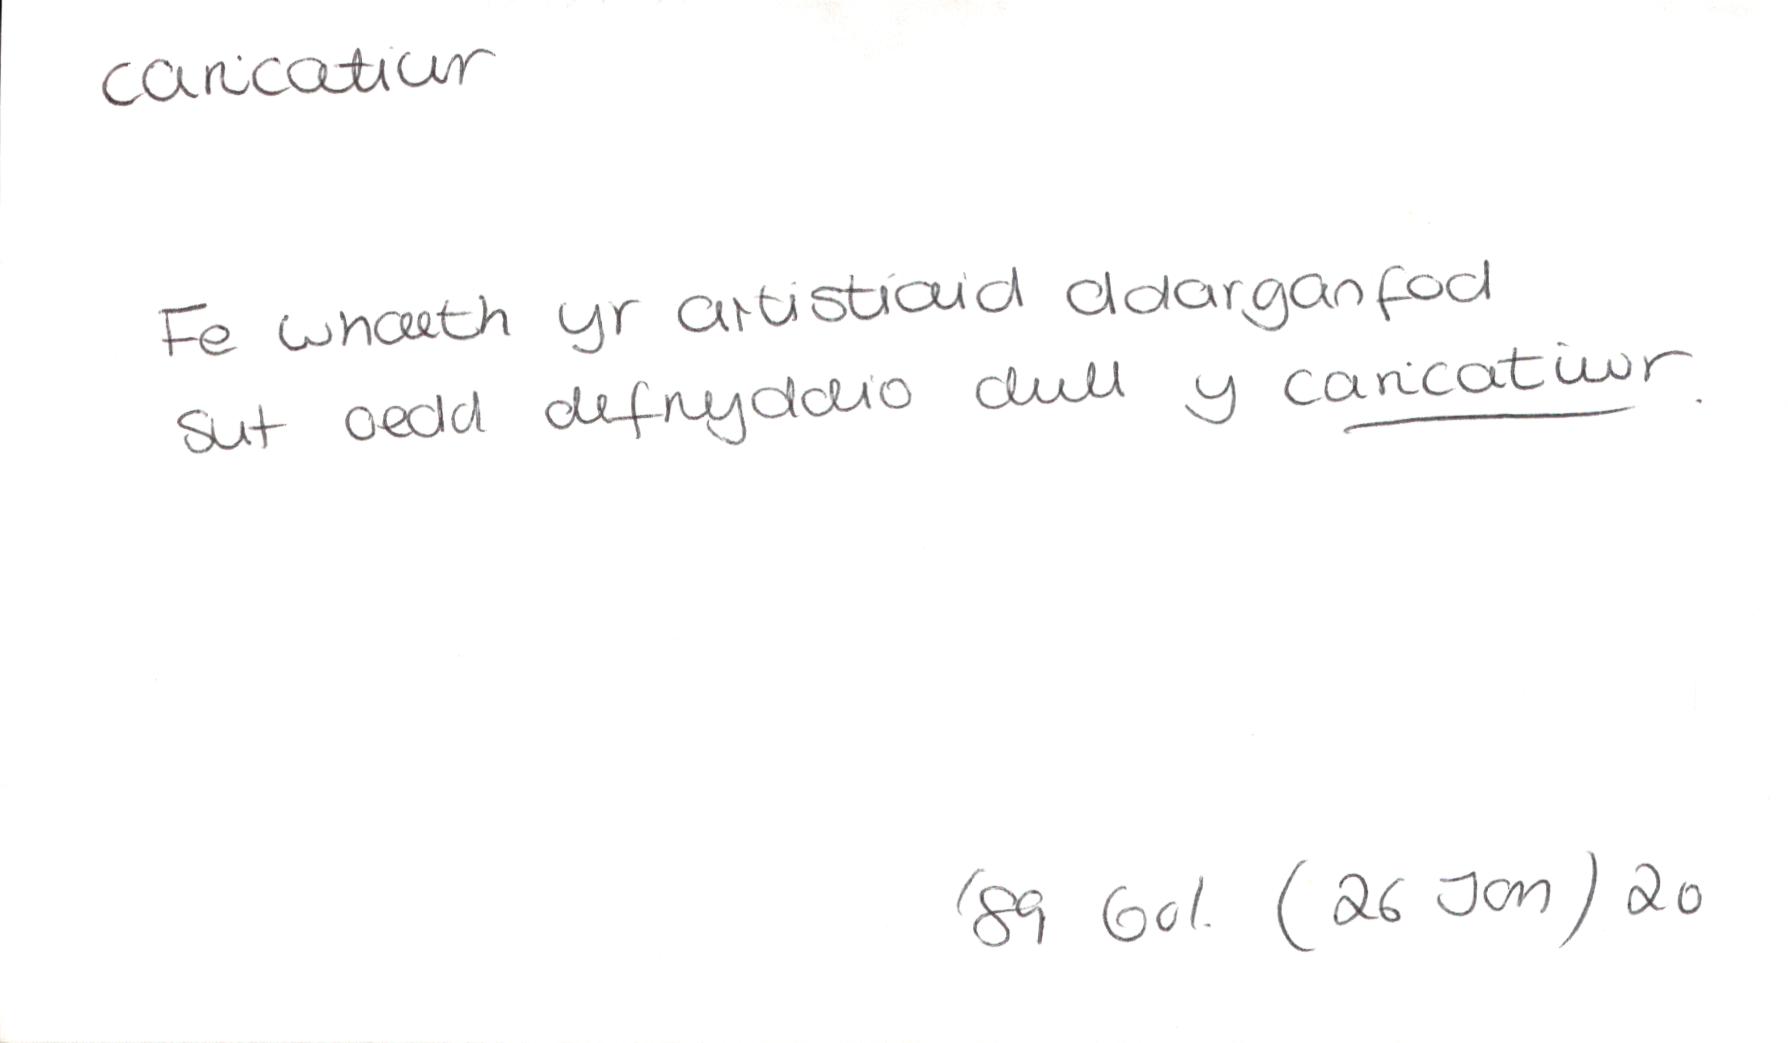 caricatiur
Fe wnaeth yr artistiaid ddarganfod
sut oedd defnyddio dull y caricatiwr.
'89 Gol. (26 Ion) 20